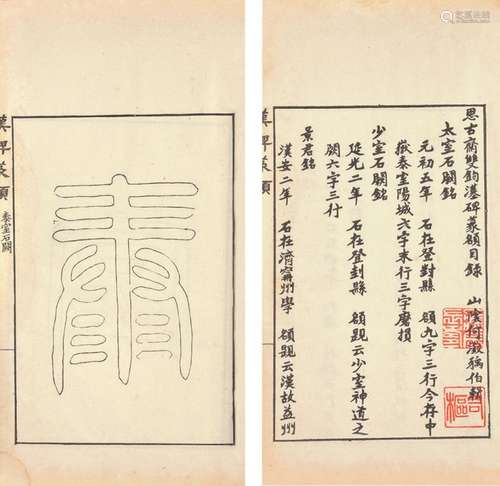 思古齋雙鉤漢碑篆額目錄 山陰何澂
太室石闕銘
元初五年 石在登封縣 額九字三行今存中
嶽泰室陽城六字末行三字磨損
少室石闕銘
延光二年 石在登封縣 額題云少室神道之
闕六字三行
景君銘
漢安二年 石在濟甯州學 額題云漢故益州
漢碑篆額
漢碑篆額 泰室石闕
泰